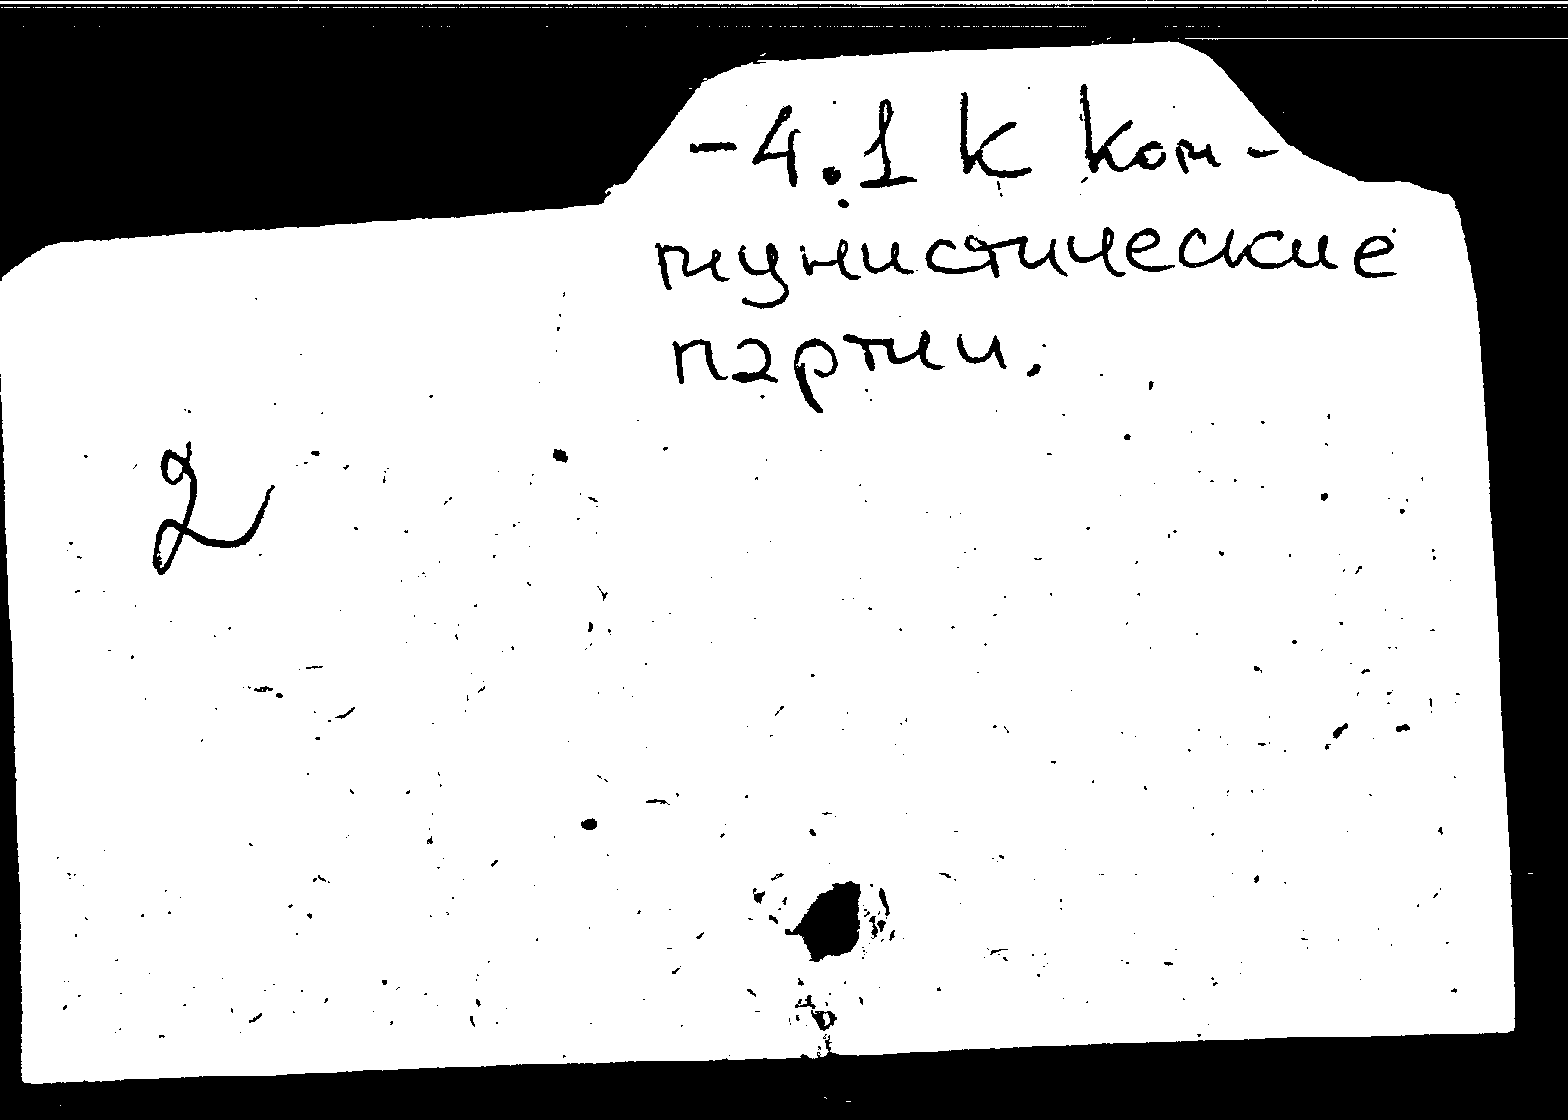 -4.1 К Ком-
мунистические
партии.
2